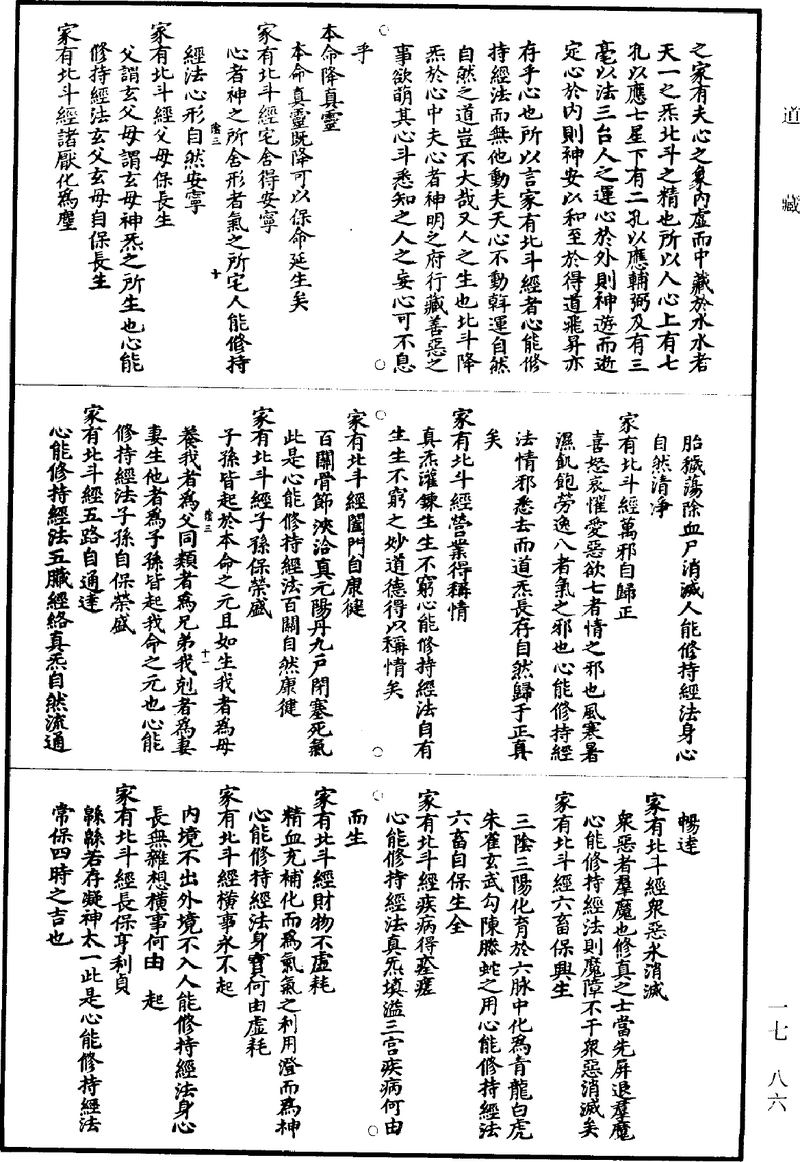 道藏
之家有夫心之象內虛而中藏於水水者
天一之炁北斗之精也所以人心上有七
孔以應七星下有二孔以應輔弼及有三
毫以法三台人之運心於外則神遊而逝
定心於內則神安以和至於得道飛昇亦
存乎心也所以言家有北斗經者心能修
持經法而無他動夫天心不動斡運自然
自然之道豈不大哉又人之生也北斗降
炁於心中夫心者神明之府行藏善惡之
事欲萌其心斗悉知之人之妄心可不息
乎
本命降真靈
本命真靈既降可以保命延生矣
家有北斗經宅舍得安寧
心者神之所舍形者氣之所宅人能修持
陰三
十
經法心形自然安寧
家有北斗經父母保長生
父謂玄父母謂玄母神炁之所生也心能
修持經法玄父玄母自保長生
家有北斗經諸厭化為塵
胎穢蕩除血尸消滅人能修持經法身心
自然清淨
家有北斗經萬邪自歸正
喜怒哀懼愛惡欲七者情之邪也風寒暑
濕飢飽勞逸八者氣之邪也心能修持經
法情邪悉去而道炁長存自然歸于正真
矣
家有北斗經營業得稱情
真炁灌鍊生生不窮心能修持經法自有
生生不窮之妙道德得以稱情矣
家有北斗經闔門自康健
百關骨節浹洽真元陽丹九戶閉塞死氣
此是心能修持經法百關自然康健
家有北斗經子孫保榮盛
子孫皆起於本命之元且如生我者為母
陰三
十一
養我者為父同類者為兄弟我剋者為妻
妻生他者為子孫皆起我命之元也心能
修持經法子孫自保榮盛
家有北斗經五路自通達
心能修持經法五臟經絡真炁自然流通
暢達
家有北斗經眾惡永消滅
眾惡者羣魔也修真之士當先屏退羣魔
心能修持經法則魔障不干眾惡消滅矣
家有北斗經六畜保興生
三陰三陽化育於六脉中化為青龍白虎
朱雀玄武勾陳騰蛇之用心能修持經法
六畜自保生全
家有北斗經疾病得痊瘥
心能修持經法真炁填溢三宮疾病何由
而生
家有北斗經財物不虛耗
精血充補化而為氣氣之利用澄而為神
心能修持經法身寶何由虛耗
家有北斗經橫事永不起
內境不出外境不入人能修持經法身心
長無雜想橫事何由 起
家有北斗經長保亨利貞
緜緜若存凝神太一此是心能修持經法
常保四時之吉也
一七 八六